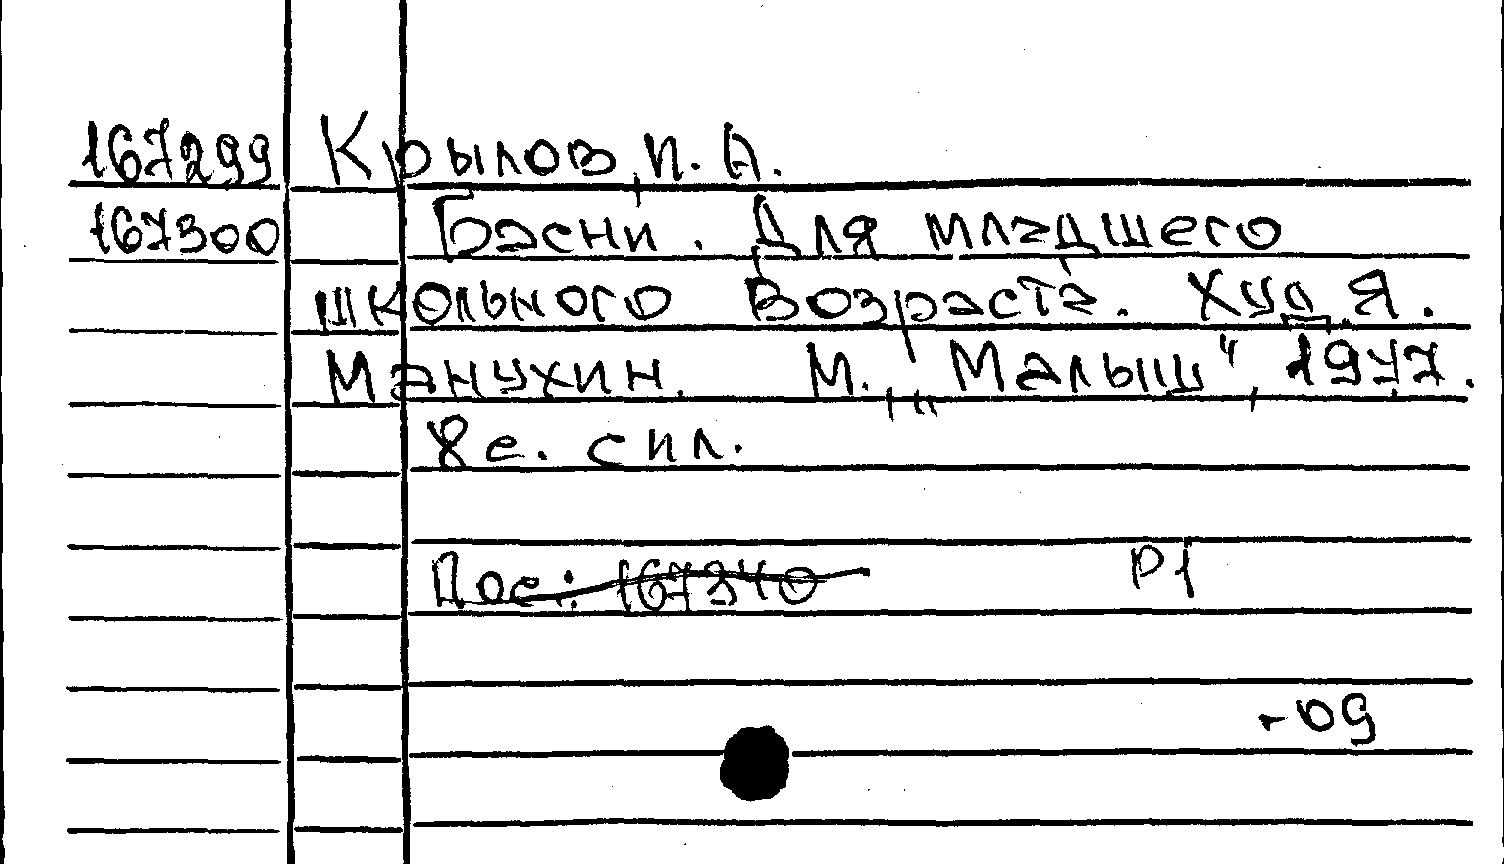 167299 Крылов, И. А.
167300 Басни. Для младшего
школьного возраста. Худ. Я.
Манухин. М., „Малыш“, 1977.
8 с. с ил.
Дос.: 167340 Р1
-09